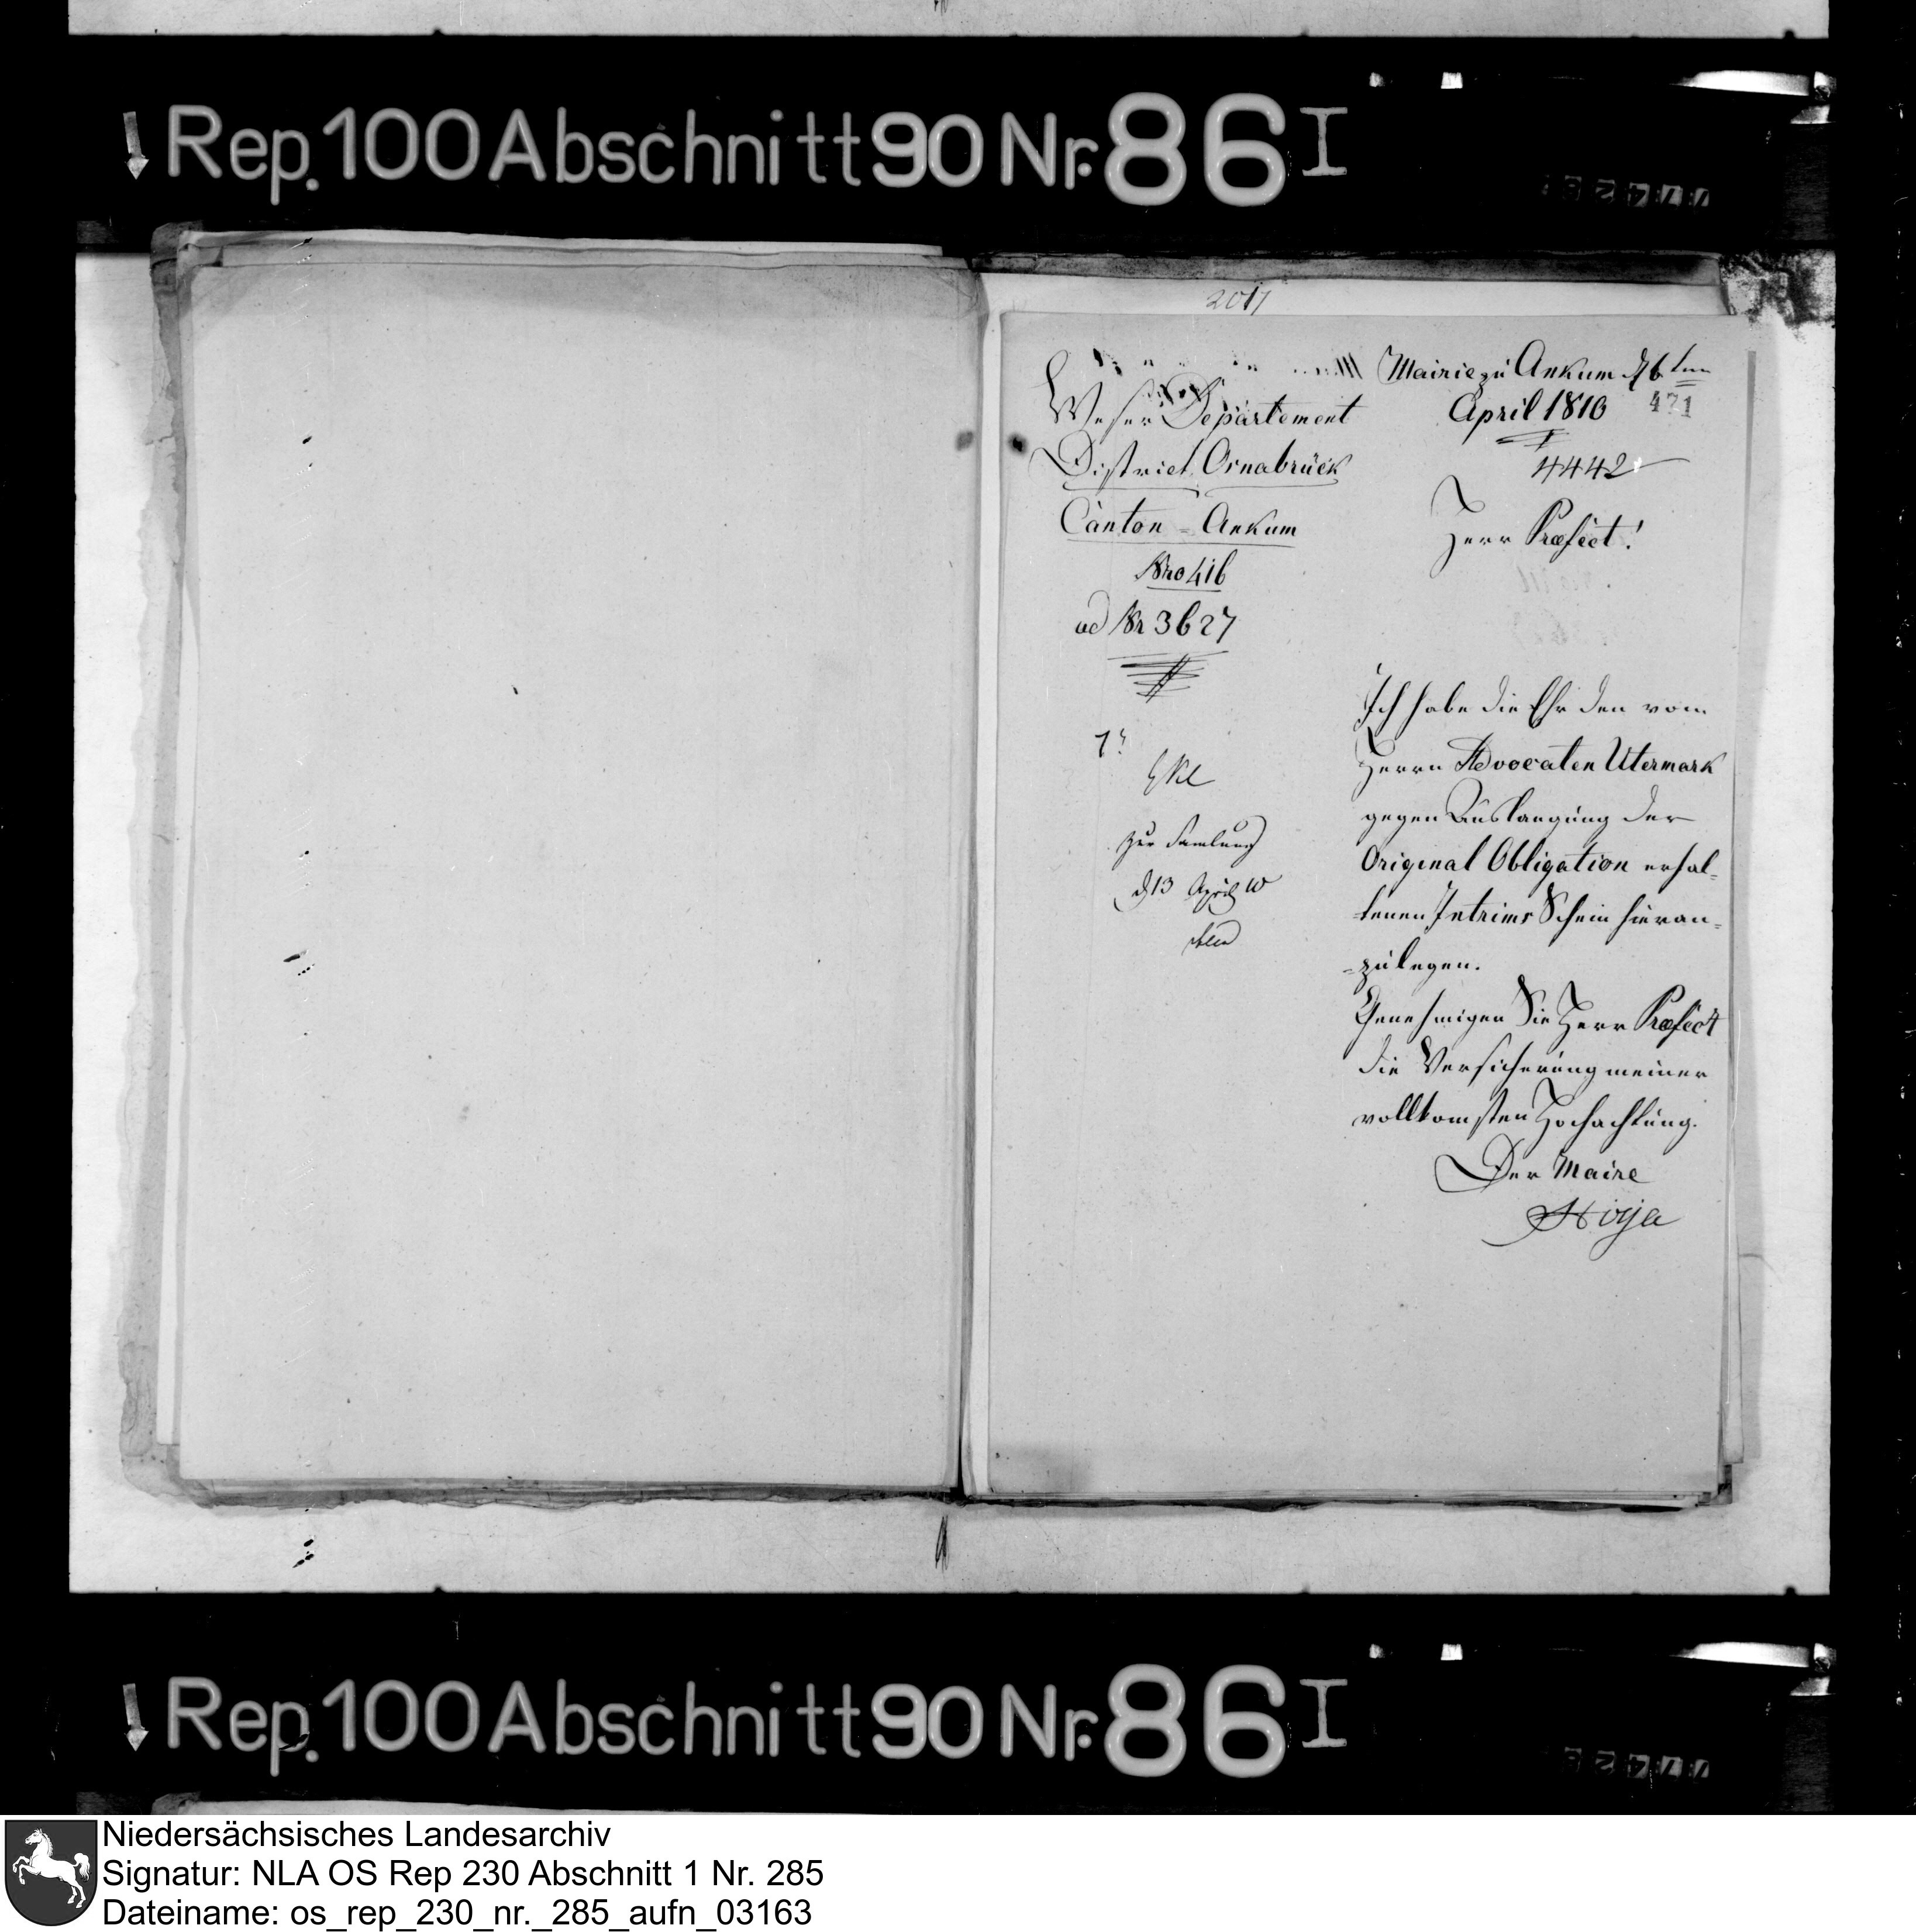 Rep. 100 Abschnitt 90 Nr. 86 I
2017
Weser Departement
District Osnabrück
Canton - Ankum
Nro 416
ad Nr 3627
zur Samlung
d 13 April 10
Mairie zu Ankum d 6ten
April 1810
471
4442
Herr Præfect!
Ich habe die Ehr den vom
Herrn Advocaten Utermark
gegen Auslangung der
Original Obligation erhal-
tenen Intrims Schein hieran-
-zulegen.
Genehmigen Sie Herr Præfect
die Versicherung meiner
vollkomsten Hochachtung.
Der Maire
Hoija
Rep. 100 Abschnitt 90 Nr. 86 I
Niedersächsisches Landesarchiv
Signatur: NLA OS Rep 230 Abschnitt 1 Nr. 285
Dateiname: os_rep_230_nr._285_aufn_03163